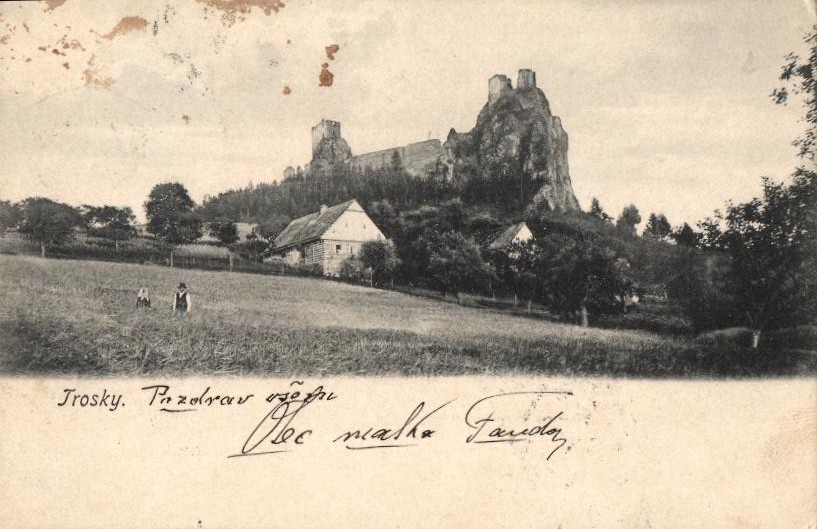 Trosky. Pozdrav všem
Otec matka Fanda